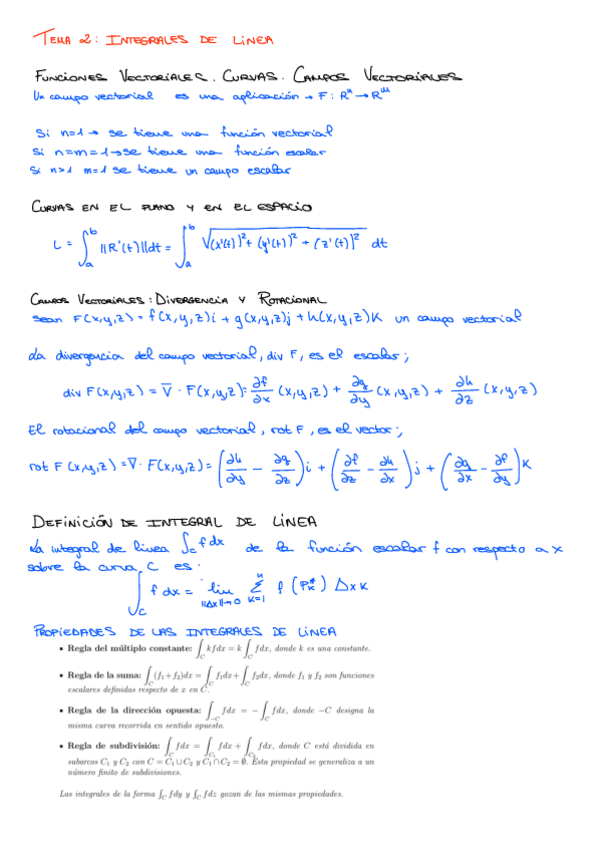 TEMA 2: INTEGRALES DE LINEA
FUNCIONES VECTORIALES. CURVAS. CAMPOS VECTORIALES
Un campo vectorial es una aplicación → F: Rⁿ → Rᵐ
Si n=1 → se tiene una función vectorial
Si n=m=1 → se tiene una función escalar
Si n>1 m=1 se tiene un campo escalar
CURVAS EN EL PLANO Y EN EL ESPACIO
L = ∫_a^b ||R'(t)||dt = ∫_a^b √((x'(t))² + (y'(t))² + (z'(t))²) dt
CAMPOS VECTORIALES: DIVERGENCIA Y ROTACIONAL
Sean F(x,y,z) = f(x,y,z)i + g(x,y,z)j + h(x,y,z)k un campo vectorial
La divergencia del campo vectorial, div F, es el escalar;
div F(x,y,z) = ∇ · F(x,y,z) = ∂f/∂x (x,y,z) + ∂g/∂y (x,y,z) + ∂h/∂z (x,y,z)
El rotacional del campo vectorial, rot F, es el vector;
rot F (x,y,z) = ∇ · F(x,y,z) = (∂h/∂y - ∂g/∂z)i + (∂f/∂z - ∂h/∂x)j + (∂g/∂x - ∂f/∂y)k
DEFINICIÓN DE INTEGRAL DE LINEA
La integral de linea ∫_C f dx de la función escalar f con respecto a x
sobre la curva C es:
∫_C f dx = lim_{||Δx||→0} Σ_{k=1}^n f(P*_k) Δxk
PROPIEDADES DE LAS INTEGRALES DE LINEA
• Regla del múltiplo constante: ∫_C kfdx = k ∫_C fdx, donde k es una constante.
• Regla de la suma: ∫_C (f₁+f₂)dx = ∫_C f₁dx + ∫_C f₂dx, donde f₁ y f₂ son funciones
escalares definidas respecto de x en C.
• Regla de la dirección opuesta: ∫_{-C} fdx = - ∫_C fdx, donde -C designa la
misma curva recorrida en sentido opuesto.
• Regla de subdivisión: ∫_C fdx = ∫_{C₁} fdx + ∫_{C₂} fdx, donde C está dividida en
subarcos C₁ y C₂ con C = C₁ ∪ C₂ y C₁ ∩ C₂ = ∅. Esta propiedad se generaliza a un
número finito de subdivisiones.
Las integrales de la forma ∫_C fdy y ∫_C fdz gozan de las mismas propiedades.